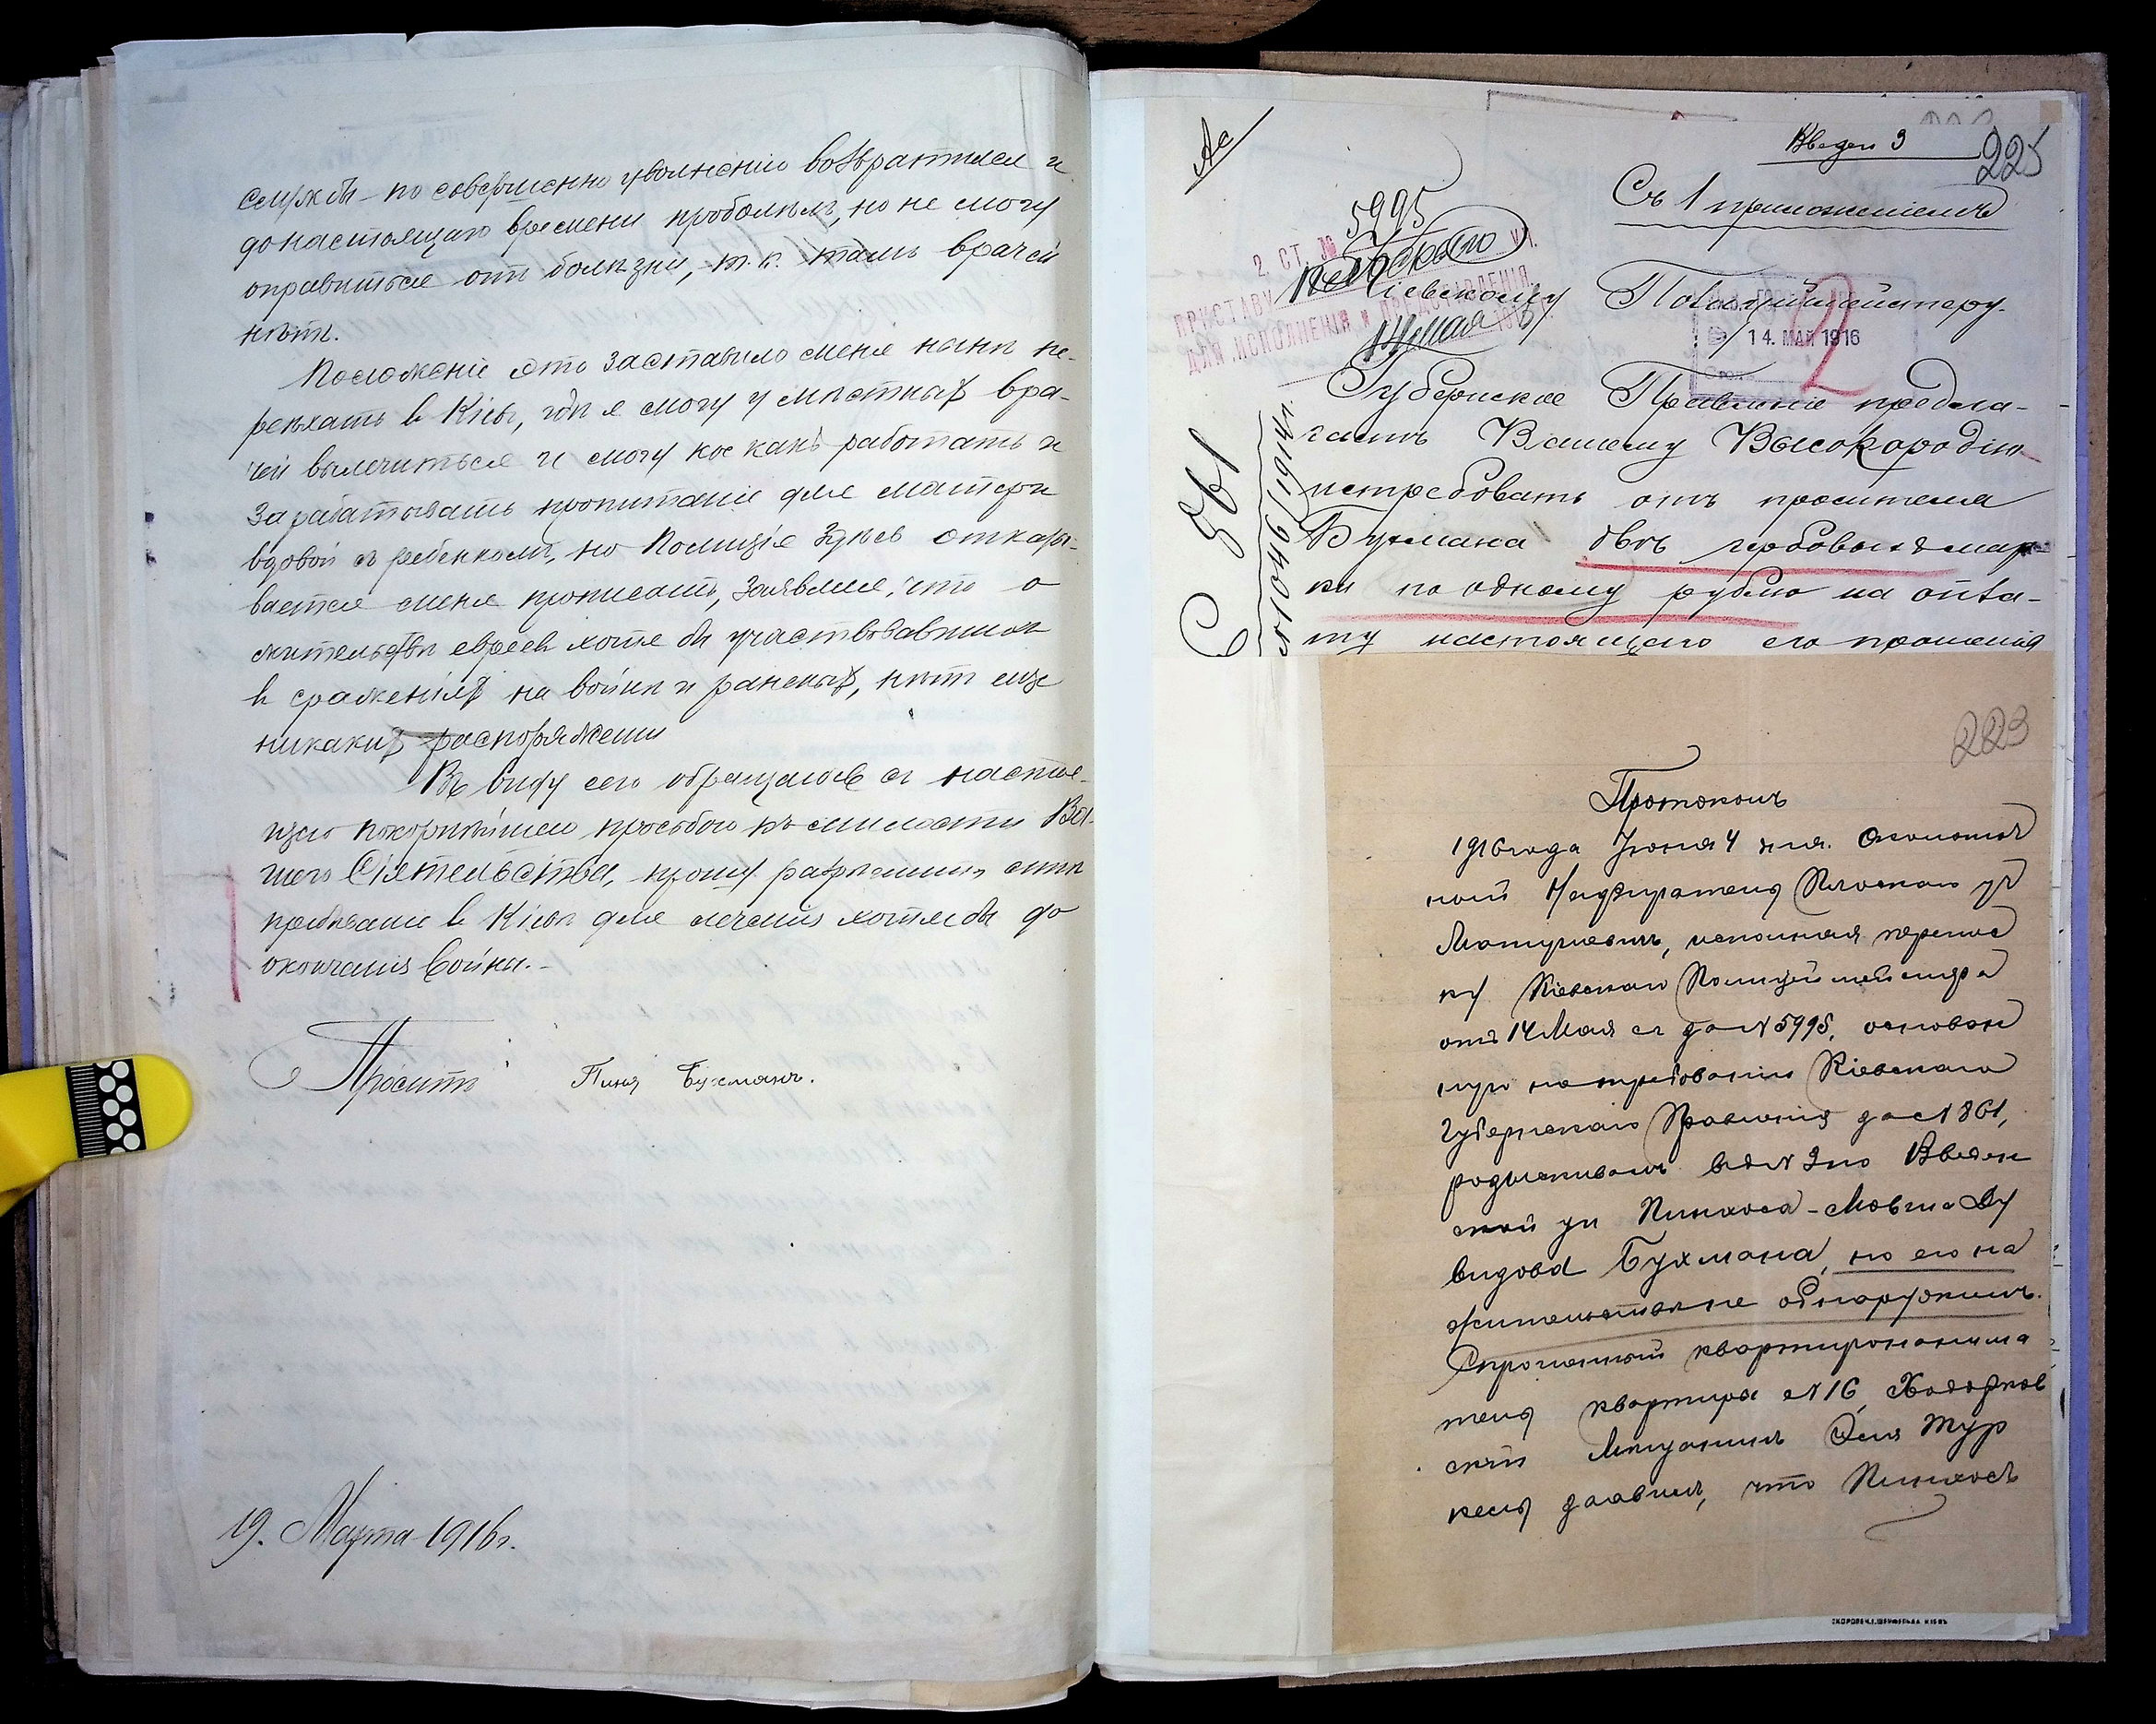 службы по совершенно увольненію возвратился и
до настоящаго времени проболѣлъ, но не могу
оправиться отъ болѣзни, т.к. тамъ врачей
нѣтъ.
Положеніе это заставило меня нынѣ пе-
реѣхать в Кіевъ, гдѣ я могу у мѣстныхъ вра-
чей вылечиться и смогу кое какъ работать и
зарабатывать пропитаніе для матери
вдовой съ ребенкомъ, но Полиція здѣсь отказы-
вается меня прописать, заявляя, что о
жительствѣ евреевъ хотя бы участвовавшихъ
въ сраженіяхъ на войнѣ и раненыхъ, нѣтъ еще
никакихъ распоряженій
Въ виду сего обращаюсь съ настоя-
щею покорнѣйшею просьбою къ милости Ва-
шего Сіятельства, прошу разрѣшить мнѣ
пребываніе въ Кіевѣ для леченія хотя бы до
окончанія войны.-
Проситъ Пиня Бухманъ.
19. Марта 1916 г.
Введен 3
225
Съ 1 приложеніемъ
5995
2. СТ. №
ПРИСТАВУ
ДЛЯ ИСПОЛНЕНІЯ И
Кіевскому Полиціймейстеру.
14. МАЙ 1916
2
Губернское Правленіе предла-
гаетъ Вашему Высокородію
истребовать отъ просителя
Бухмана двѣ гербовыя мар-
ки по одному рублю на опла-
ту настоящаго его прошенія
861
223
Протоколъ
1916 года Іюня 4 дня. Околоточ
ный Надзиратель Плоскаго уч
Матушевичъ, исполняя перепис
ку Кіевскаго Полиціймейстера
отъ 14 Мая сг за № 5995, основан
ную на требованіи Кіевскаго
Губернскаго Правленія за № 861,
розыскивалъ въ д № 3 по Введен
ской ул Пинхоса-Мовша Ду
видова Бухмана, но его на
жительствѣ не обнаружилъ.
Спрошенный квартиронанима
тель квартиры № 16, Ходорков
скій Мѣщанинъ Тур
кель заявилъ, что Пинхосъ
СКОРОПЕЧ. КІЕВЪ